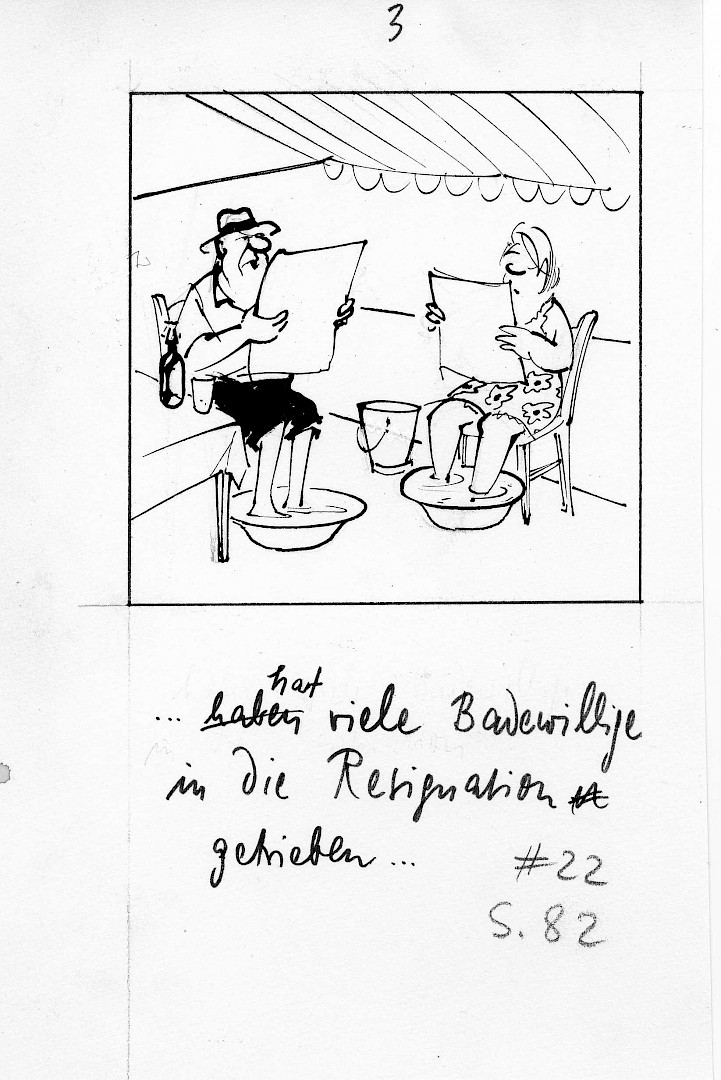 3
... haben hat viele Badewillige
in die Resignation
getrieben ...
#22
S. 82